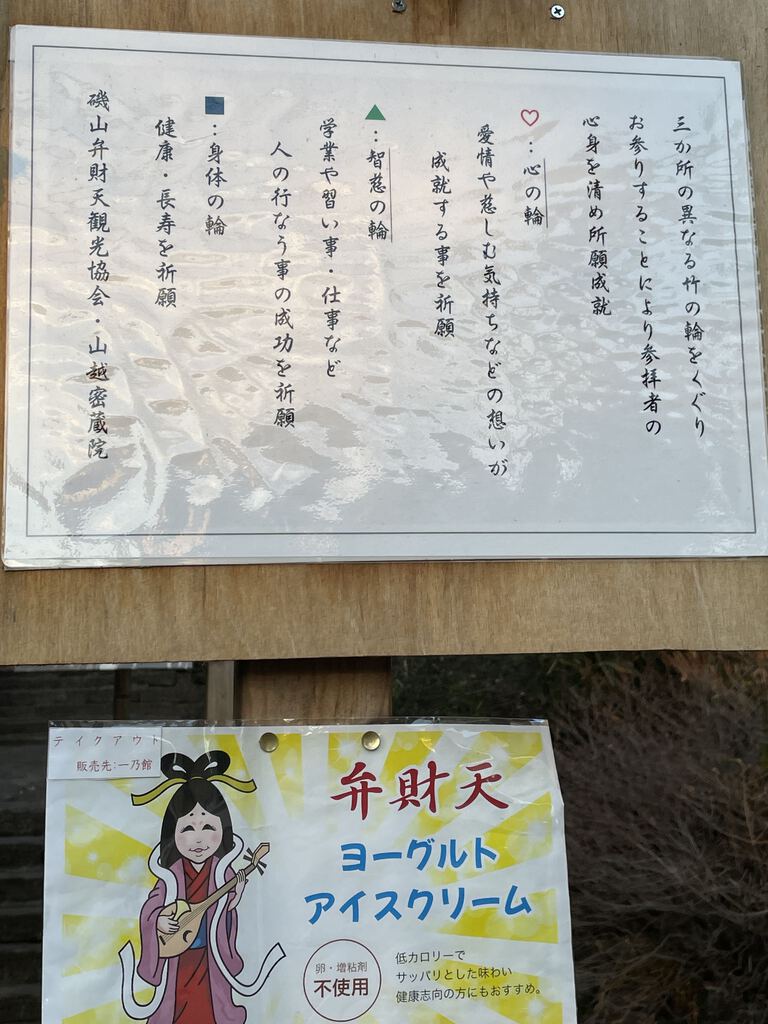 三か所の異なる竹の輪をくぐり
お参りすることにより参拝者の
心身を清め所願成就
♡:心の輪
愛情や慈しむ気持ちなどの想いが
成就する事を祈願
▲:智慈の輪
学業や習い事・仕事など
人の行なう事の成功を祈願
■:身体の輪
健康・長寿を祈願
磯山弁財天観光協会・山越密蔵院
テイクアウト
販売先:一乃館
弁財天
ヨーグルト
アイスクリーム
卵・増粘剤
不使用
低カロリーで
サッパリとした味わい
健康志向の方にもおすすめ。